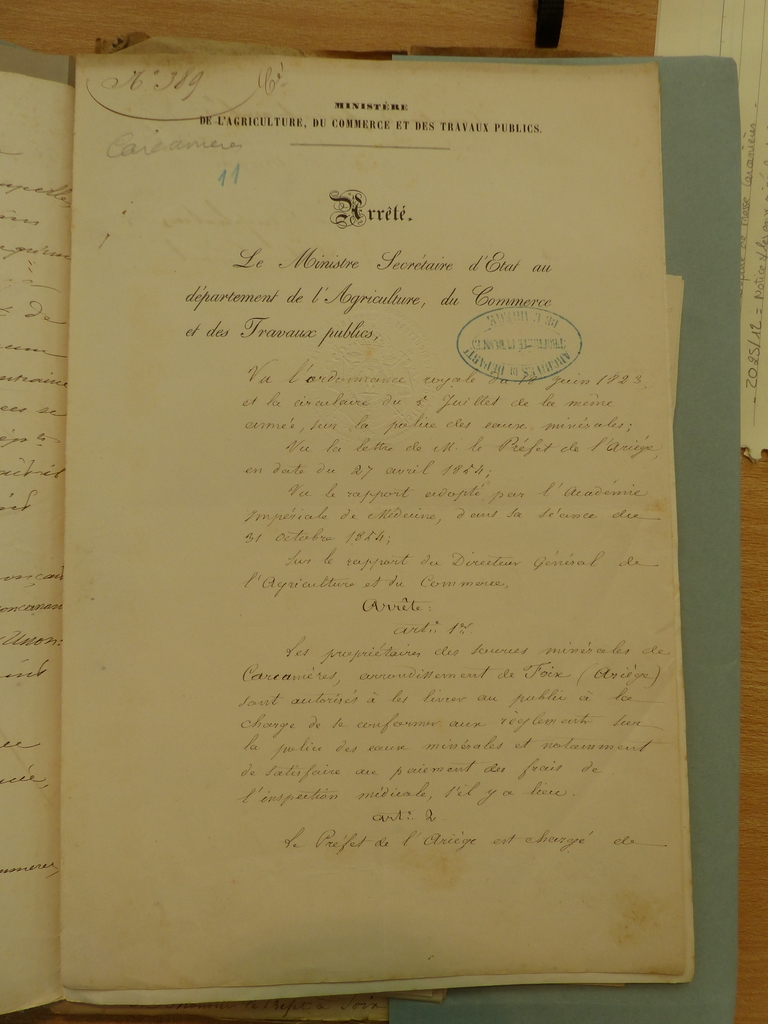 N° 389
Cé
MINISTÈRE
DE L'AGRICULTURE, DU COMMERCE ET DES TRAVAUX PUBLICS.
Carcanières
11
Arrêté.
Le Ministre Secrétaire d'Etat au
département de l'Agriculture, du Commerce
et des Travaux publics,
ARCHIVES DU DÉPARTT
DE L'ARIÈGE
Vu l'ordonnance royale du 18 Juin 1823,
et la circulaire du 5 Juillet de la même
année, sur la police des eaux minérales;
Vu la lettre de M. le Préfet de l'Ariège,
en date du 27 avril 1854;
Vu le rapport adopté par l'Académie
Impériale de Médecine, dans sa séance du
31 octobre 1854;
Sur le rapport du Directeur Général de
l'Agriculture et du Commerce,
Arrête:
art. 1er.
Les propriétaires des sources minérales de
Carcanières, arrondissement de Foix (Ariège)
sont autorisés à les livrer au public à la
charge de se conformer aux règlements sur
la police des eaux minérales et notamment
de satisfaire au paiement des frais de
l'inspection médicale, s'il y a lieu.
art. 2
Le Préfet de l'Ariège est chargé de